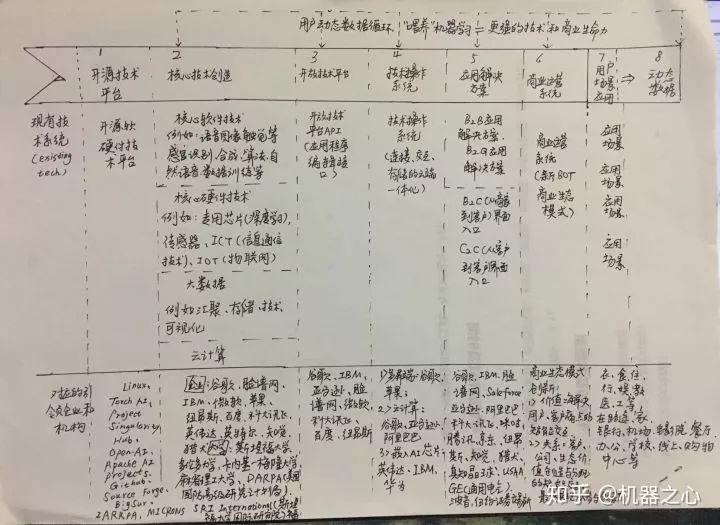 用户动态数据循环，"喂养"机器学习 = 更强的技术和商业生命力
1
开源技术
平台
2
核心技术创造
3
开放技术平台
4
技术操作
系统
5
应用解决
方案
6
商业运营
系统
7
用户
场景
应用
⇒
8
动态
数据
现有技
术系统
(existing
tech)
开源软
硬件技
术平台
核心软件技术
例如：语音图像触觉等
感官识别、合成、算法、自
然语言数据训练等
核心硬件技术
例如：专用芯片(深度学习)、
传感器、ICT(信息通信
技术)、IOT(物联网)
大数据
例如汇聚、存储、技术、
可视化
云计算
开放技术
平台API
(应用程序
编辑接
口)
技术操作
系统
(连接、交互、
存储的云端
一体化)
B2B应用
解决方案、
B2G应用
解决方案
B2C
到客户)界面
入口
到客户界面
入口
商业运营
系统
(新BOT
商业生态
模式)
应用
场景
应用
场景
应用
场景
应用
场景
对应的引
领企业和
机构
Linux,
Torch AI,
Project
Singularity,
Hub,
Open-AI,
Apache AI
projects,
Github,
Source Forge,
BigSur,
IARRPA, MICRONS
企业：谷歌、脸谱网、
IBM、微软、苹果、
纽昂斯、百度、科大讯飞、
英伟达、英特尔、知晓、
猎犬 斯坦福大学、
多伦多大学、卡内基-梅隆大学、
麻省理工大学、DARPA(美国
国防高级研究计划局)、
SRI International(斯坦
谷歌、IBM、
亚马逊、脸
谱网、微软、
科大讯飞、
百度、纽昂斯
谷歌、
2)云计算：
谷歌、亚马逊、
阿里巴巴
3)嵌入AI芯片：
英伟达、IBM、
华为
谷歌、IBM、脸
谱网、Saleforce
亚马逊、阿里巴巴
科大讯飞、
腾讯、京东、纽昂
斯、知晓、猎犬、
USAA
GE(通用电气)、
商业生态模式
包括：
1)价值：海解决
用户、客户痛点的
2)关系：客户、
公司、生态价
衣、食、住、
行、娱、教、
医、工等，
银行、机场、餐厅、
办公、学校、线上、购物
中心等
知乎 @机器之心